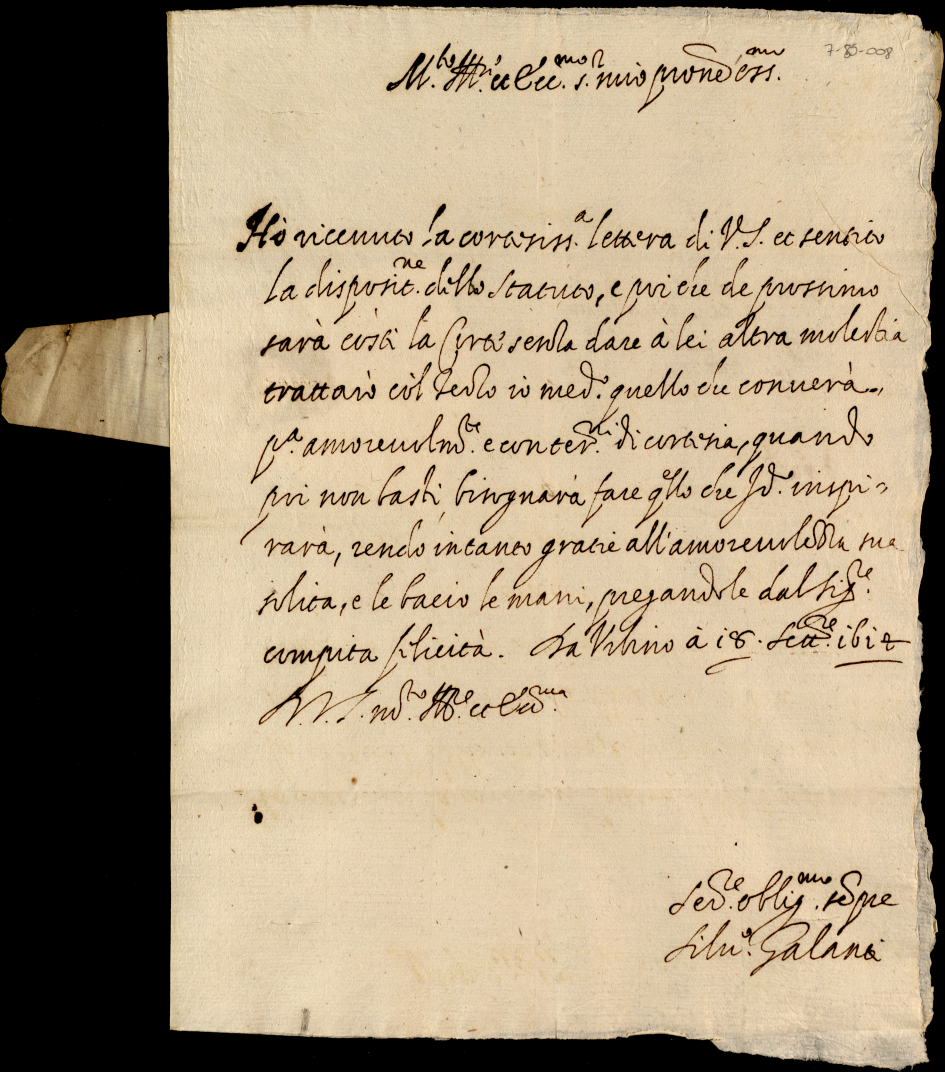 7-85-008
M.to Ill.re et Ecc.mo s.r mio pron̄e oss.mo
Hò riceuuto la cortesiss.a lettera di V.S. et sentito
la disposit.ne dello statuto, e poi che de prossimo
sarà costì la Corte senza dare à lei altra molestia
trattarò col Tedo io med.o quello che conuerà
p.a amoreuolm.te e con ter.ni di cortesia, quando
poi non basti, bisognarà fare q.ello che Id.o inspi=
rarà, rendo intanto gratie all'amoreuolezza sua
solita, e le bacio le mani, pregandole dal Sig.re
compita felicità. Da Vrbino à 18. Sett.re 1612
D. V. S. m.to Ill.re et Ecc.ma
Ser.re oblig.mo sēpre
Silu.o Galani